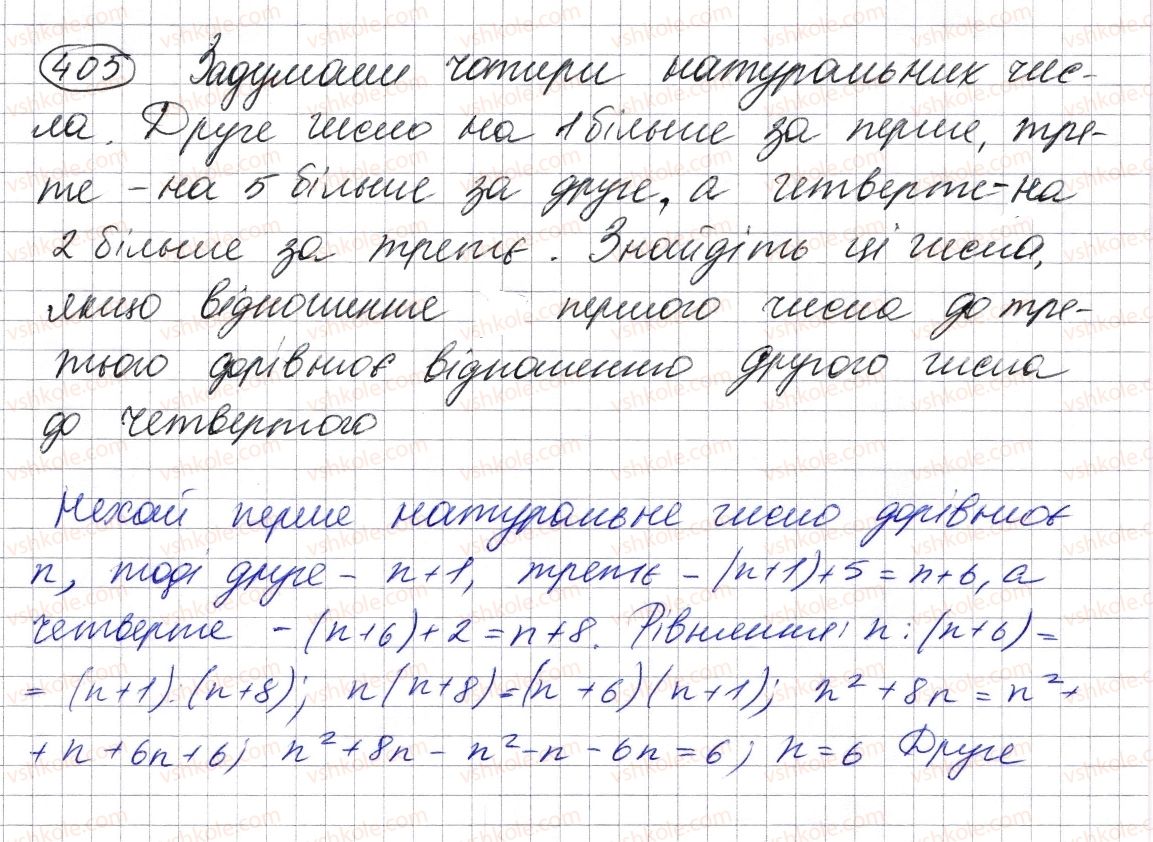 405 Задумали чотири натуральних чис-
ла. Друге число на 1 більше за перше, тре-
тє - на 5 більше за друге, а четверте - на
2 більше за третє. Знайдіть ці числа,
якщо відношення першого числа до тре-
тього дорівнює відношенню другого числа
до четвертого
Нехай перше натуральне число дорівнює
n, тоді друге - n+1, третє - (n+1)+5=n+6, а
четверте - (n+6)+2=n+8. Рівняння: n:(n+6)=
= (n+1):(n+8); n(n+8)=(n+6)(n+1); n²+8n=n²+
+n+6n+6; n²+8n-n²-n-6n=6; n=6 Друге